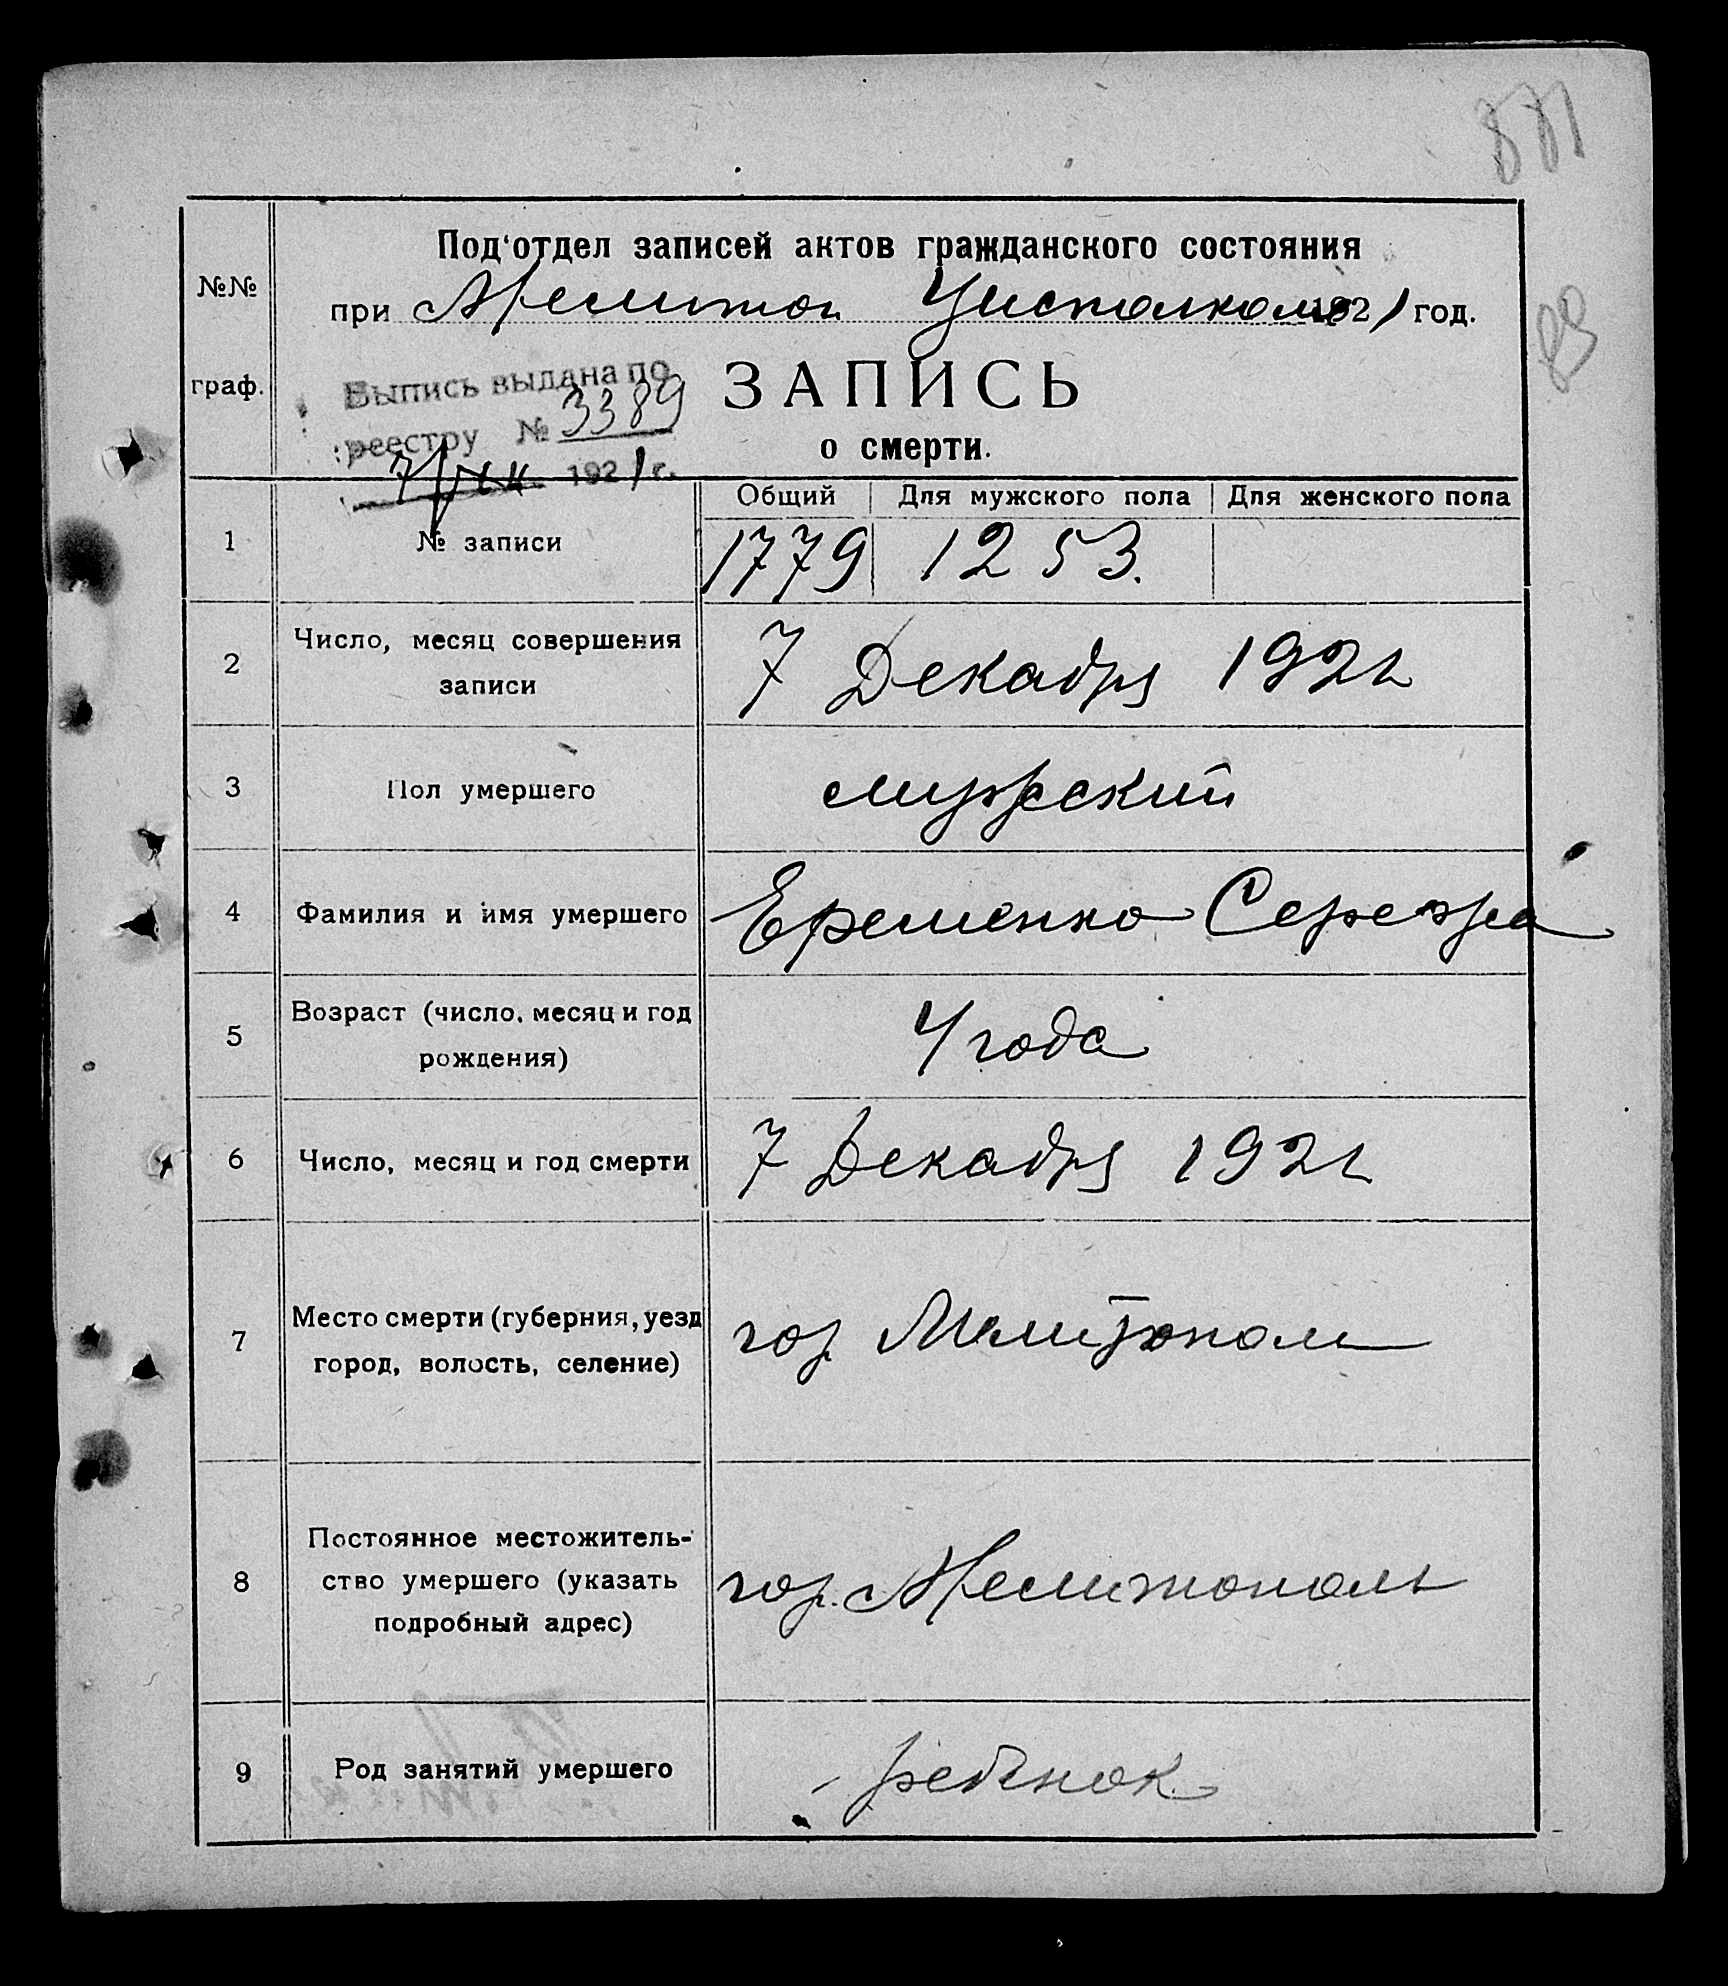 881
89
Под'отдел записей актов гражданского состояния
№№
при Мелитоп. Уисполкоме 1921 год.
граф.
Выпись выдана по
реестру № 3389
7/дек 1921 г.
ЗАПИСЬ
о смерти.
Общий Для мужского пола Для женского пола
1 № записи 1779 1253.
2 Число, месяц совершения
записи
7 Декабря 1921
3 Пол умершего мужской
4 Фамилия и имя умершего Еременко Сережа
5 Возраст (число, месяц и год
рождения)
4 года
6 Число, месяц и год смерти 7 Декабря 1921
7 Место смерти (губерния, уезд
город, волость, селение)
гор Мелитополь
8 Постоянное местожитель-
ство умершего (указать
подробный адрес)
гор. Мелитополь
9 Род занятий умершего ребенок